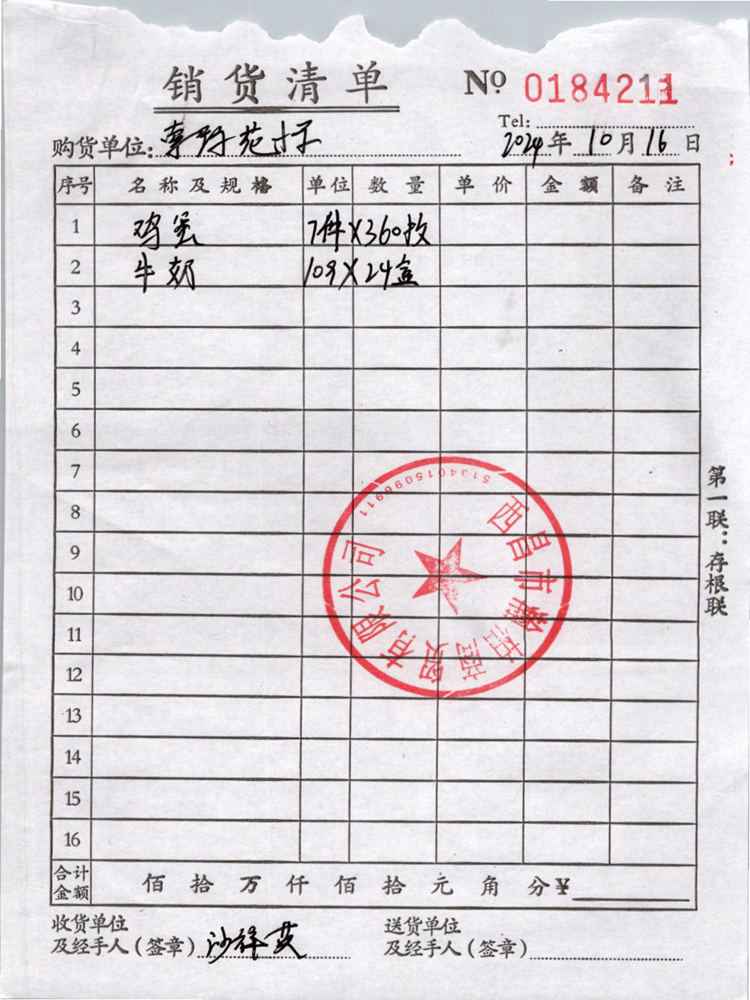 销货清单 № 0184211
Tel:
购货单位: 2024年10月16日
序号 名称及规格 单位 数量 单价 金额 备注
1 鸡蛋 7件X360枚
2 牛奶 109X24盒
3
4
5
6
7
8
9
10
11
12
13
14
15
16
合计金额 佰拾万仟佰拾元角分¥
收货单位 送货单位
及经手人(签章) 及经手人(签章)
第一联:存根联
西昌市 商贸有限公司